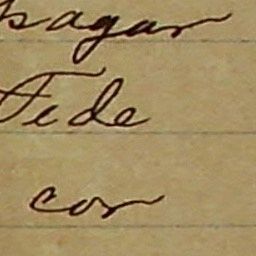 pagar
Fide
cor